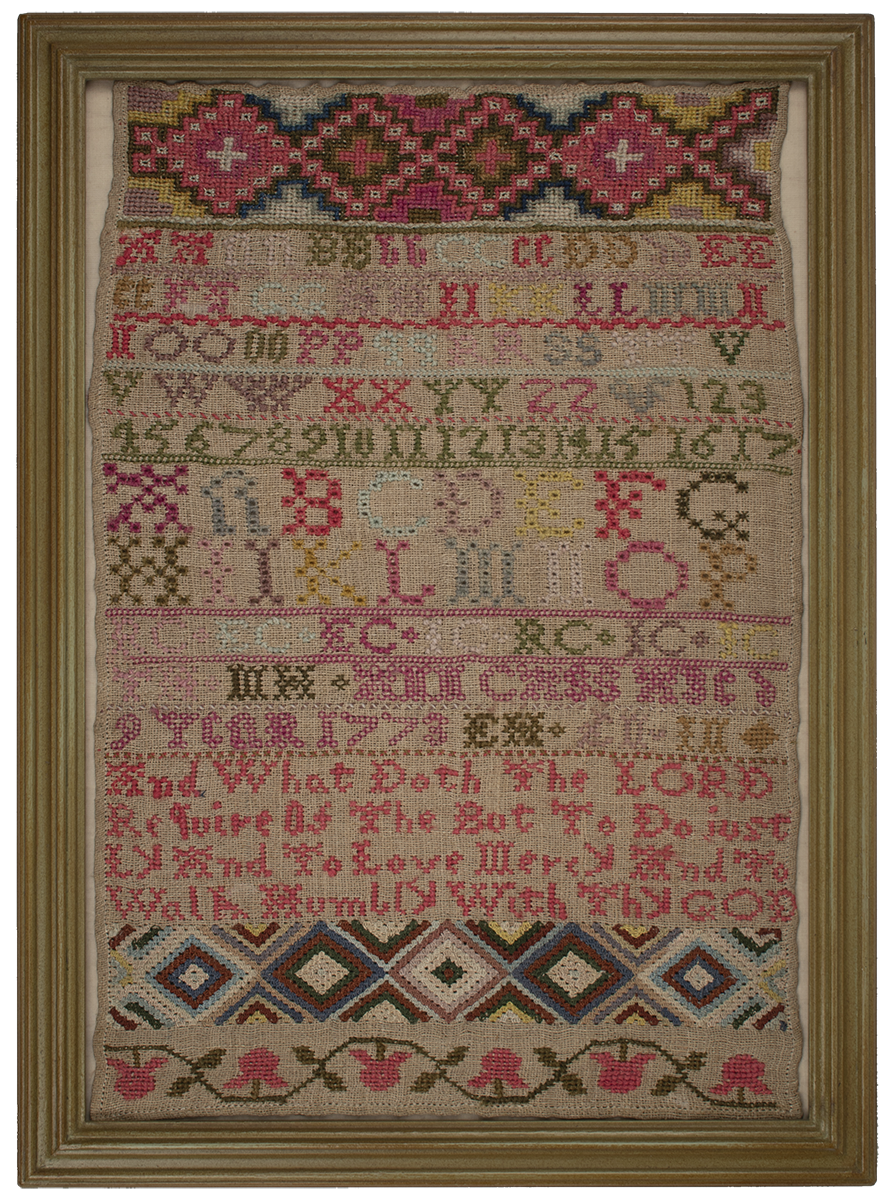 A A B B C C C C D D D E E
E E F F G G I I K K L L M M N
N O O O O P P R R S S T T V
V W W X X Y Y Z Z 1 2 3
4 5 6 7 8 9 10 11 12 13 14 15 16 17
A B C D E F G
H I K L M N O P
EC · EC · IC · RC · IC · IC
MH ·
9 YEAR 1773 EH ·
And What Doth The LORD
Require Of The But To Do just
LY And To Love Mercy And To
Walk HumblY With ThY GOD